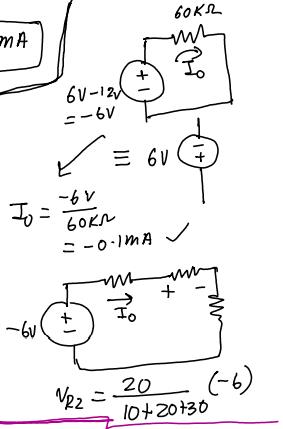 mA
60KΩ
+
−
I₀
6V−12V
= −6V
≡ 6V
−
+
I₀ = −6V / 60KΩ
= −0.1mA ✓
−6V
+
−
I₀
+ −
V_R2 = 20 / (10+20+30) (−6)